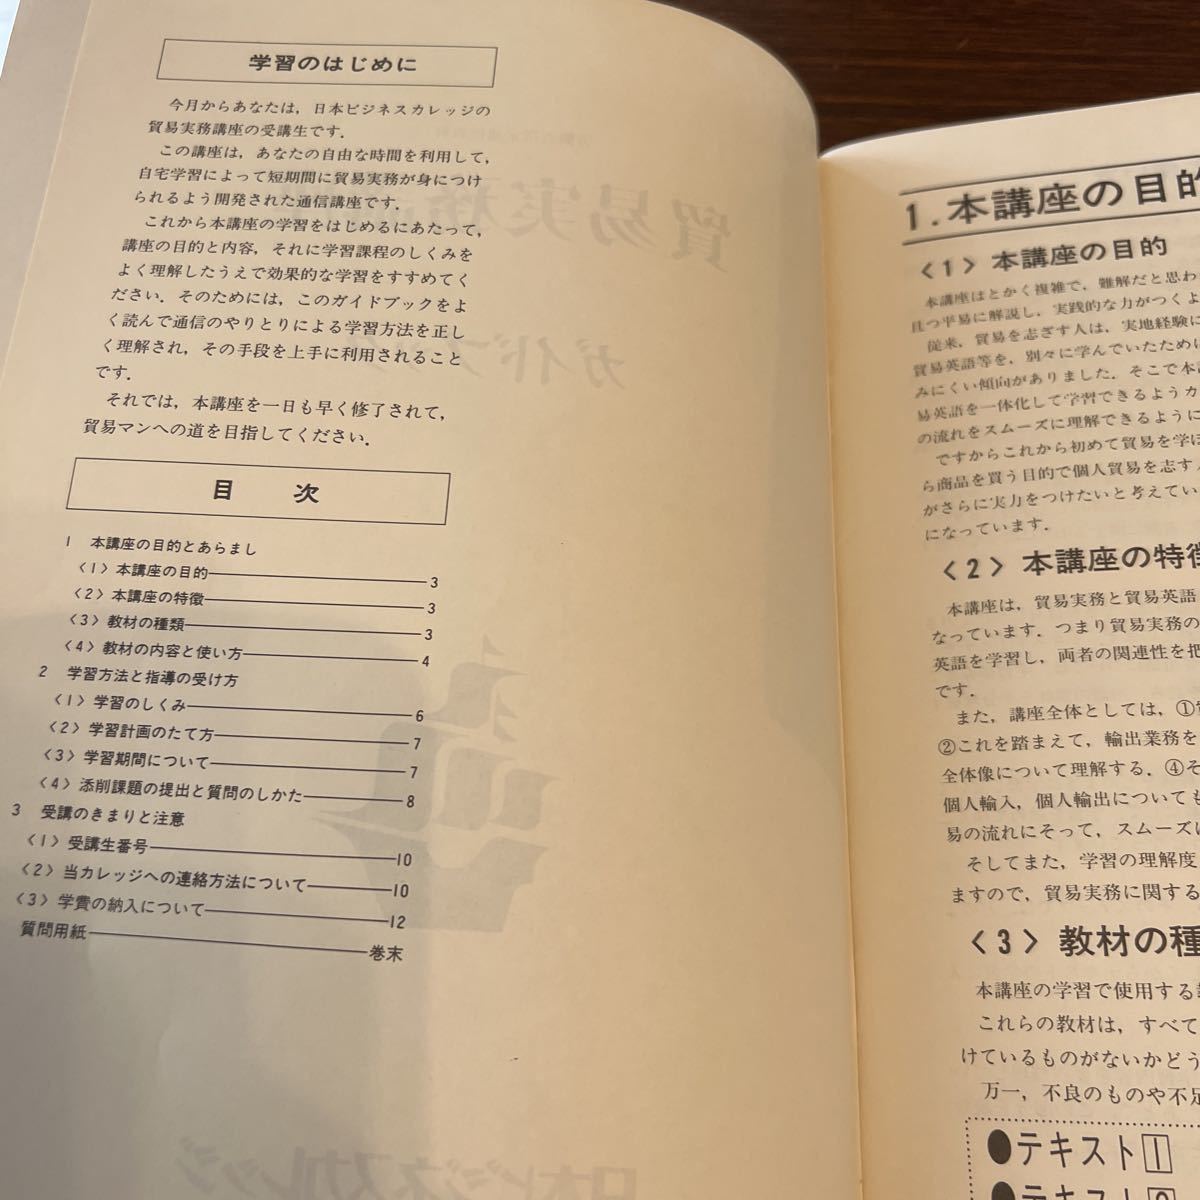 学習のはじめに
今月からあなたは，日本ビジネスカレッジの
貿易実務講座の受講生です．
この講座は，あなたの自由な時間を利用して，
自宅学習によって短期間に貿易実務が身につけ
られるよう開発された通信講座です．
これから本講座の学習をはじめるにあたって，
講座の目的と内容，それに学習課程のしくみを
よく理解したうえで効果的な学習をすすめてく
ださい．そのためには，このガイドブックをよ
く読んで通信のやりとりによる学習方法を正し
く理解され，その手段を上手に利用されること
です．
それでは，本講座を一日も早く修了されて，
貿易マンへの道を目指してください．
目 次
1 本講座の目的とあらまし
〈1〉本講座の目的 3
〈2〉本講座の特徴 3
〈3〉教材の種類 3
〈4〉教材の内容と使い方 4
2 学習方法と指導の受け方
〈1〉学習のしくみ 6
〈2〉学習計画のたて方 7
〈3〉学習期間について 7
〈4〉添削課題の提出と質問のしかた 8
3 受講のきまりと注意
〈1〉受講生番号 10
〈2〉当カレッジへの連絡方法について 10
〈3〉学費の納入について 12
質問用紙 巻末
1.本講座の目的
〈1〉本講座の目的
本講座はとかく複雑で，難解だと思わ
且つ平易に解説し，実践的な力がつくよ
従来，貿易を志ざす人は，実地経験に
貿易英語等を，別々に学んでいたために
みにくい傾向がありました．そこで本講
易英語を一体化して学習できるようカ
の流れをスムーズに理解できるように
ですからこれから初めて貿易を学ぼ
ら商品を買う目的で個人貿易を志す人
がさらに実力をつけたいと考えてい
になっています．
〈2〉本講座の特徴
本講座は，貿易実務と貿易英語
なっています．つまり貿易実務の
英語を学習し，両者の関連性を把
です．
また，講座全体としては，①
②これを踏まえて，輸出業務を
全体像について理解する．④そ
個人輸入，個人輸出についても
易の流れにそって，スムーズに
そしてまた，学習の理解度
ますので，貿易実務に関する
〈3〉教材の種
本講座の学習で使用する
これらの教材は，すべて
けているものがないかどう
万一，不良のものや不足
●テキスト1
●テキスト2